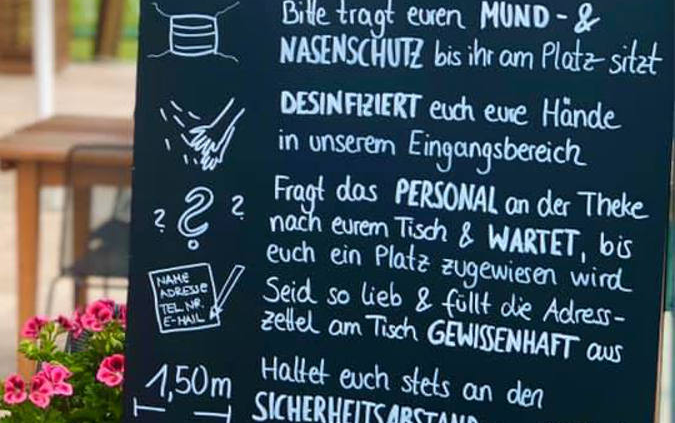 Bitte tragt euren MUND- &
NASENSCHUTZ bis ihr am Platz sitzt
DESINFIZIERT euch eure Hände
in unserem Eingangsbereich
? ? ?
Fragt das PERSONAL an der Theke
nach eurem Tisch & WARTET, bis
euch ein Platz zugewiesen wird
NAME
ADRESSE
TEL.NR.
E-MAIL
Seid so lieb & füllt die Adress-
zettel am Tisch GEWISSENHAFT aus
1,50m
Haltet euch stets an den
SICHERHEITSABSTAND